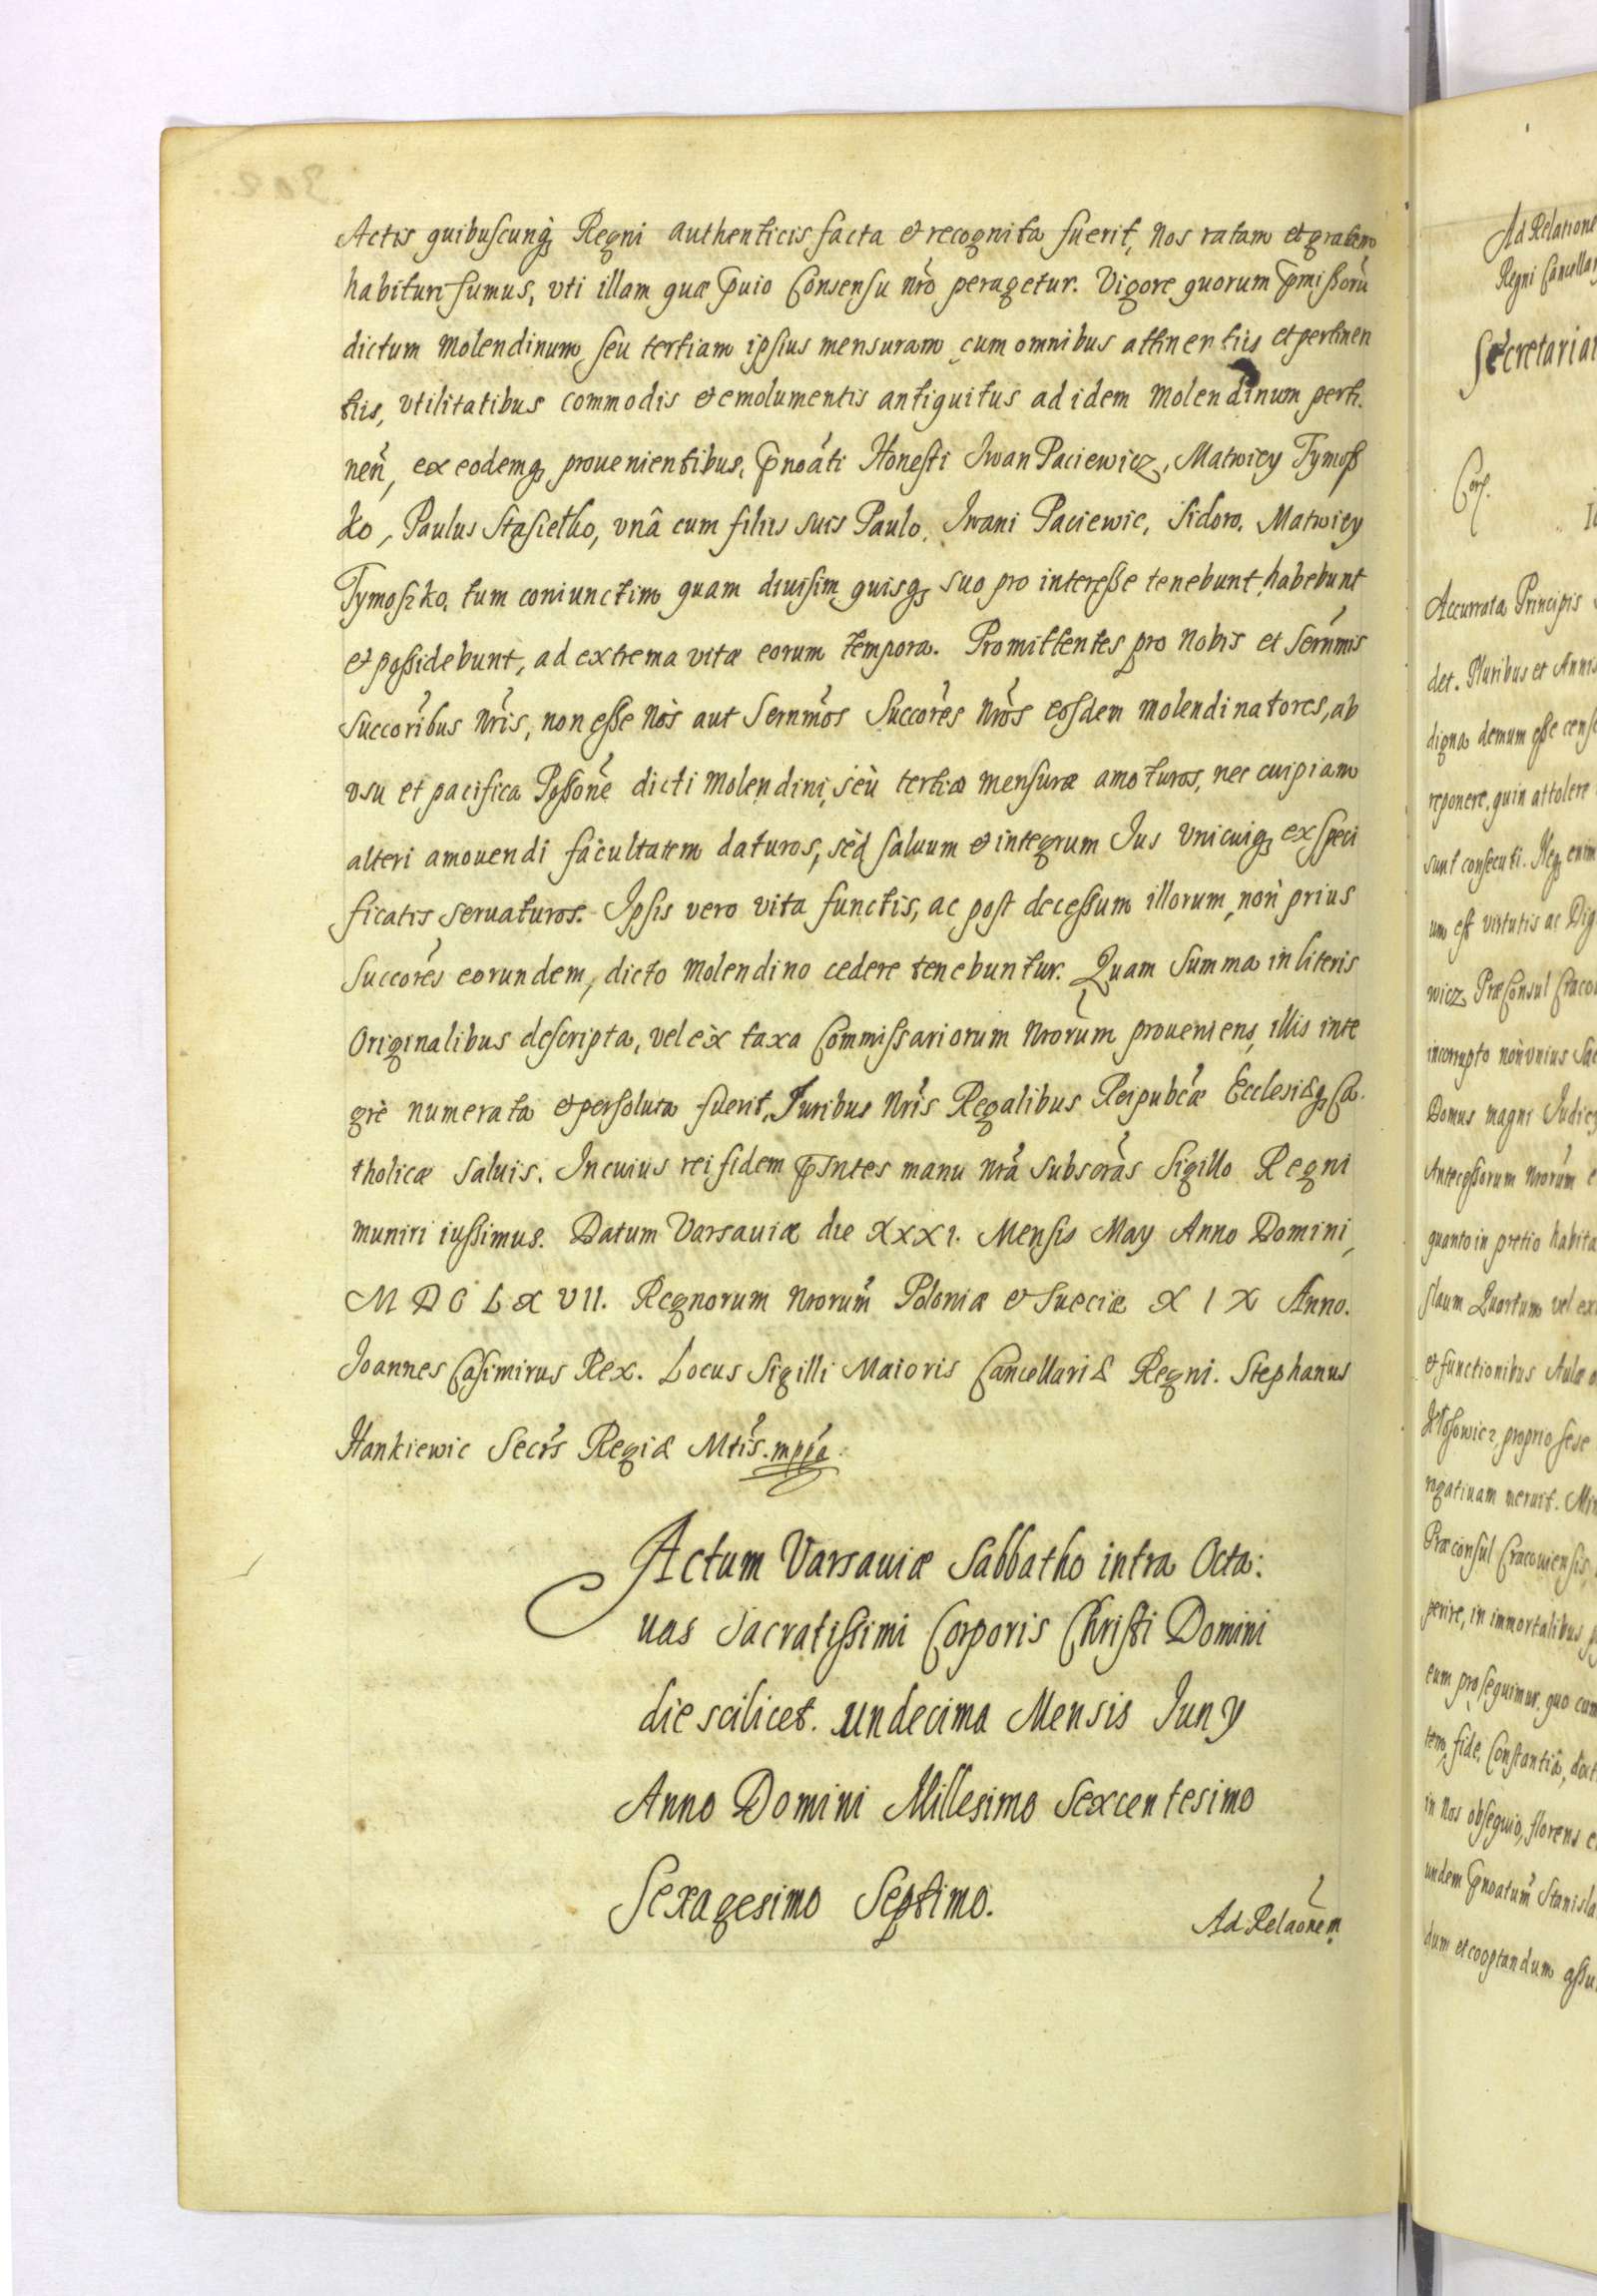 Actis quibuscunq́ꝫ Regni authenticis facta et recognita fuerit, Nos ratam et gratam
habituri sumus, vti illam quæ p̄uio Consensu nr̃o peragetur. Vigore quorum p̄missorũ
dictum Molendinum seu tertiam ipsius mensuram cum omnibus attinentiis et pertinen
tiis, vtilitatibus commodis et emolumentis antiquitus ad idem Molendinum perti.
neñ, ex eodemqꝫ prouenientibus, p̄noãti Honesti Iwan Paciewicz, Matwiey Tymosz
ko, Paulus Stasiełko, vnâ cum filiis suis Paulo, Iwani Paciewic, Sidoro, Matwiey
Tymoszko, tum coniunctim quam diuisim quisqꝫ suo pro interesse tenebunt, habebunt
et possidebunt, ad extrema vitæ eorum tempora. Promittentes pro Nobis et Serñmis
Succoribũs Nr̃is, non esse Nos aut Serñmos Succor̃es Nr̃os eosdem Molendinatores, ab
vsu et pacifica Posson̄e dicti Molendini, seù tertiæ mensuræ amoturos, nec cuipiam
alteri amouendi facultatem daturos, sèd saluum et integrum Ius Vnicuiqꝫ ex speci
ficatis seruaturos. Ipsis vero vita functis, ac post decessum illorum, non prius
Succor̃es eorundem, dicto Molendino cedere tenebuntur. Quam Summa in literis
Originalibus descripta, vel èx taxa Commissariorum Nr̃orum proueniens, illis inte
grè numerata et persoluta fuerit, Iuribus Nr̃is Regalibus Reipubcæ̃ Ecclesiæqꝫ Ca.
tholicæ saluis. In cuius rei fidem p̄sntes manu Nr̃a subscr̃as Sigillo Regni
muniri iussimus. Datum Varsauiæ die XXXI. Mensis May Anno Domini,
M D C L X VII. Regnorum Nr̃orum Poloniæ et Sueciæ X I X Anno.
Joannes Casimirus Rex. Locus Sigilli Maioris Cancellariæ Regni. Stephanus
Hankiewic Secr̃s Regiæ Mtĩs. mppa
Actum Varsauiæ Sabbatho intra Octa:
uas Sacratissimi Corporis Christi Domini
die scilicet. undecima Mensis Iuny
Anno Domini Millesimo Sexcentesimo
Sexagesimo Septimo.
Ad Relaõnem
Ad Relatione
Regni Cancellar
Secretariat
Accurrata Principis
det. Pluribus et Annis
digna demum esse cense
reponere, quin attolere
sunt consecuti. Neqꝫ enim
um est virtutis ac Dig
wicz PræConsul Craco
incorrupto non vnius Sac
Domus magni Iudicy
Antecessorum Nr̃orum e
quanto in pretio habita
slaum Quartum vel ex
et functionibus Aulæ
proprio sese
rogatiuam meruit. Min
Præconsul Cracouiensis
perire, in immortalibus
eum prosequimur. quo cum
tem, fide, Constantiâ,
in Nos obsequio, florens e
undem p̄noatum̃ Stanisla
dum et cooptandum essu